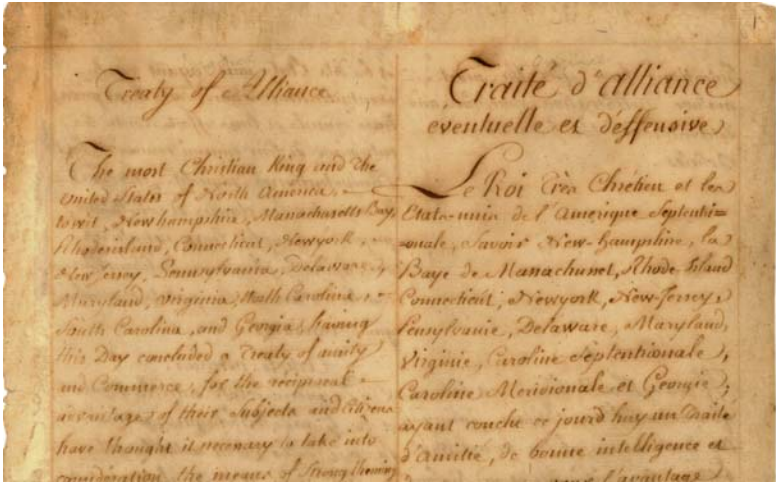 Treaty of Alliance
The most Christian King and the
United States of North America,
to wit, Newhampshire, Massachusetts Bay,
Rhodeisland, Connecticut, Newyork,
New Jersey, Pennsylvania, Delaware,
Maryland, Virginia, North Carolina,
South Carolina, and Georgia, having
this Day concluded a Treaty of amity
and Commerce, for the reciprocal
advantage of their Subjects and Citizens
have thought it necessary to take into
consideration the means of strengthening
Traité d'alliance
éventuelle et déffensive
Le Roi Très Chrétien et les
Etats-unis de l'Amerique Septentri=
=onale, Savoir New-hampshire, la
Baye de Massachusset, Rhode Island
Connecticut, Newyork, New-Jersey,
Pensylvanie, Delaware, Maryland,
Virginie, Caroline Septentrionale,
Caroline Meridionale et Georgie,
ayant conclu ce jourd'huy un Traité
d'amitié, de bonne intelligence et
l'avantage